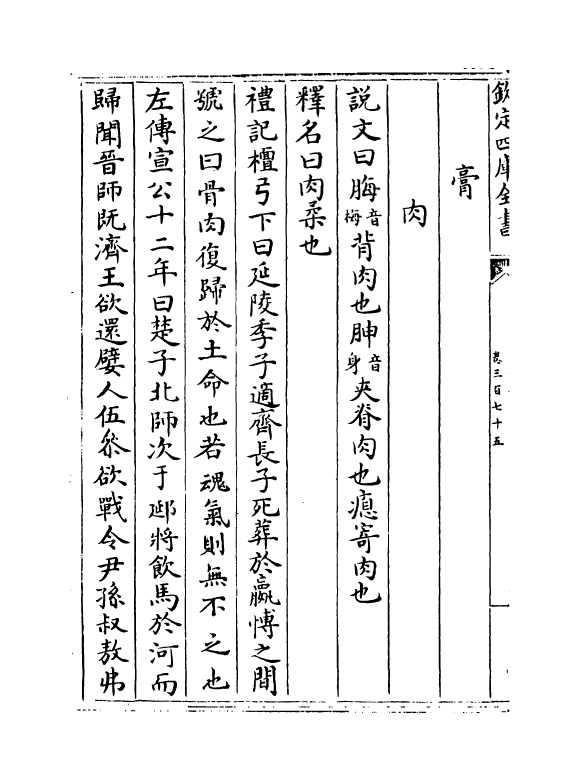 欽定四庫全書
卷三百七十五
膏
肉
說文曰脢音梅背肉也胂音身夾脊肉也瘜寄肉也
釋名曰肉柔也
禮記檀弓下曰延陵季子適齊長子死葬於嬴愽之間
號之曰骨肉復歸於土命也若魂氣則無不之也
左傳宣公十二年曰楚子北師次于郔將飲馬於河而
歸聞晉師既濟王欲還嬖人伍叅欲戰令尹孫叔敖弗